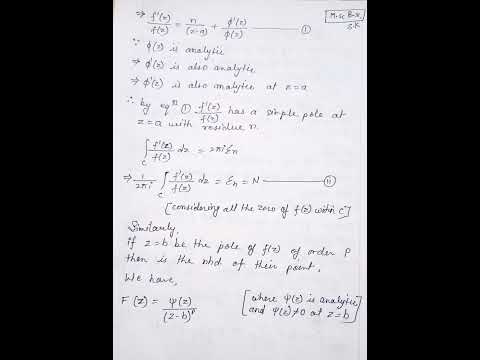 ⇒ f'(z)/f(z) = n/(z-a) + φ'(z)/φ(z) —— ①
M.Sc B.Sc
S.K
∵ φ(z) is analytic
⇒ φ'(z) is also analytic
⇒ φ'(z) is also analytic at z=a
∴ by eqⁿ ① f'(z)/f(z) has a simple pole at
z=a with residue n.
∫_C f'(z)/f(z) dz = 2πi Σn
⇒ 1/2πi ∫_C f'(z)/f(z) dz = Σn = N —— ⑪
[considering all the zero of f(z) within C]
Similarly,
if z=b be the pole of f(z) of order p
then is the nbd of their point,
We have,
F(z) = ψ(z)/(z-b)^p [where ψ(z) is analytic
and ψ(z)≠0 at z=b]